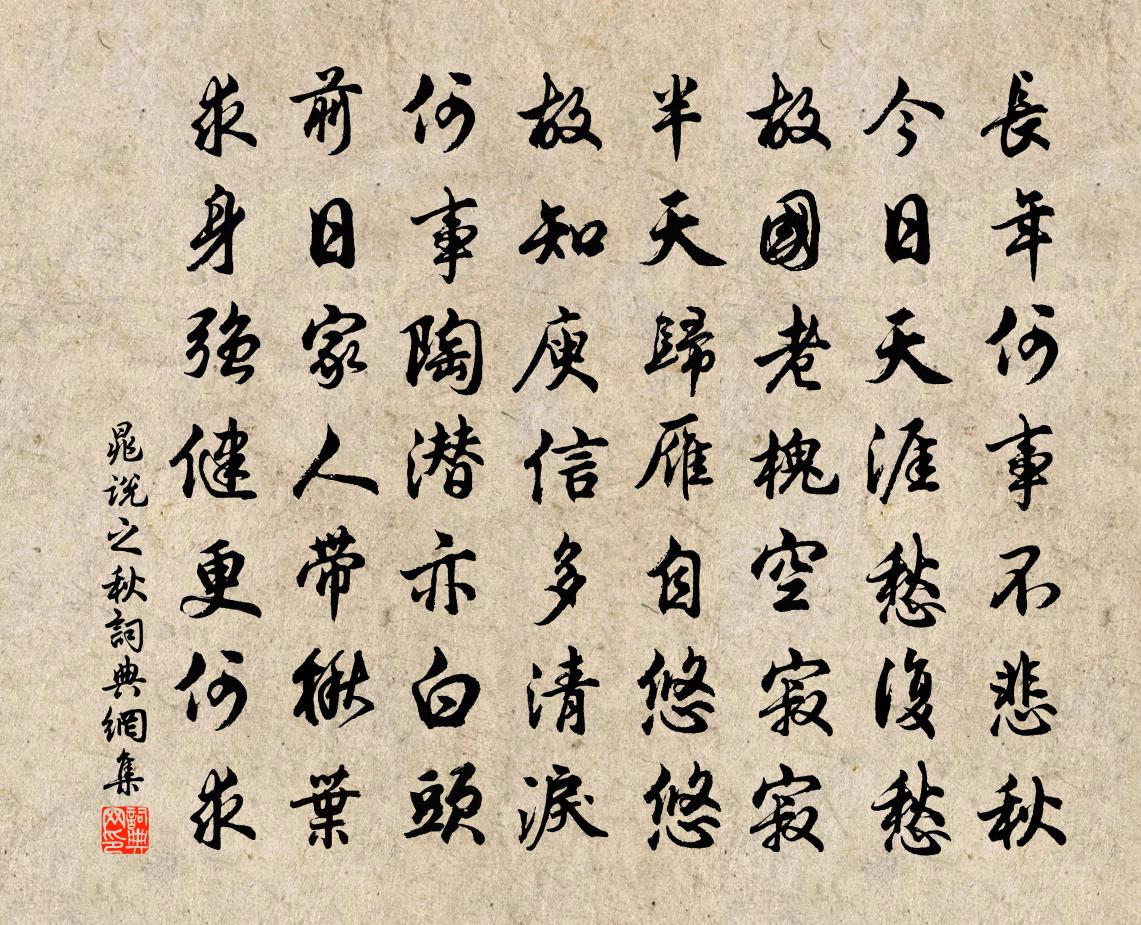 長年何事不悲秋
今日天涯愁復愁
故國老槐空寂寂
半天歸雁自悠悠
故知庾信多清淚
何事陶潜亦白頭
前日家人帶楸葉
求身強健更何求
晁說之秋詞典網集
詞典網印